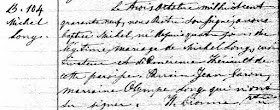 B. 104
Michel
Long.
Le trois Octobre mil huit cent
quarante neuf, nous Prêtre soussigné, avons
baptisé Michel, né depuis quatre jours du
légitime mariage de Michel Long, cul-
tivateur et de Thériault de
cette paroisse. Parrain Jean
marraine Olympe Long qui n'ont
su signer.